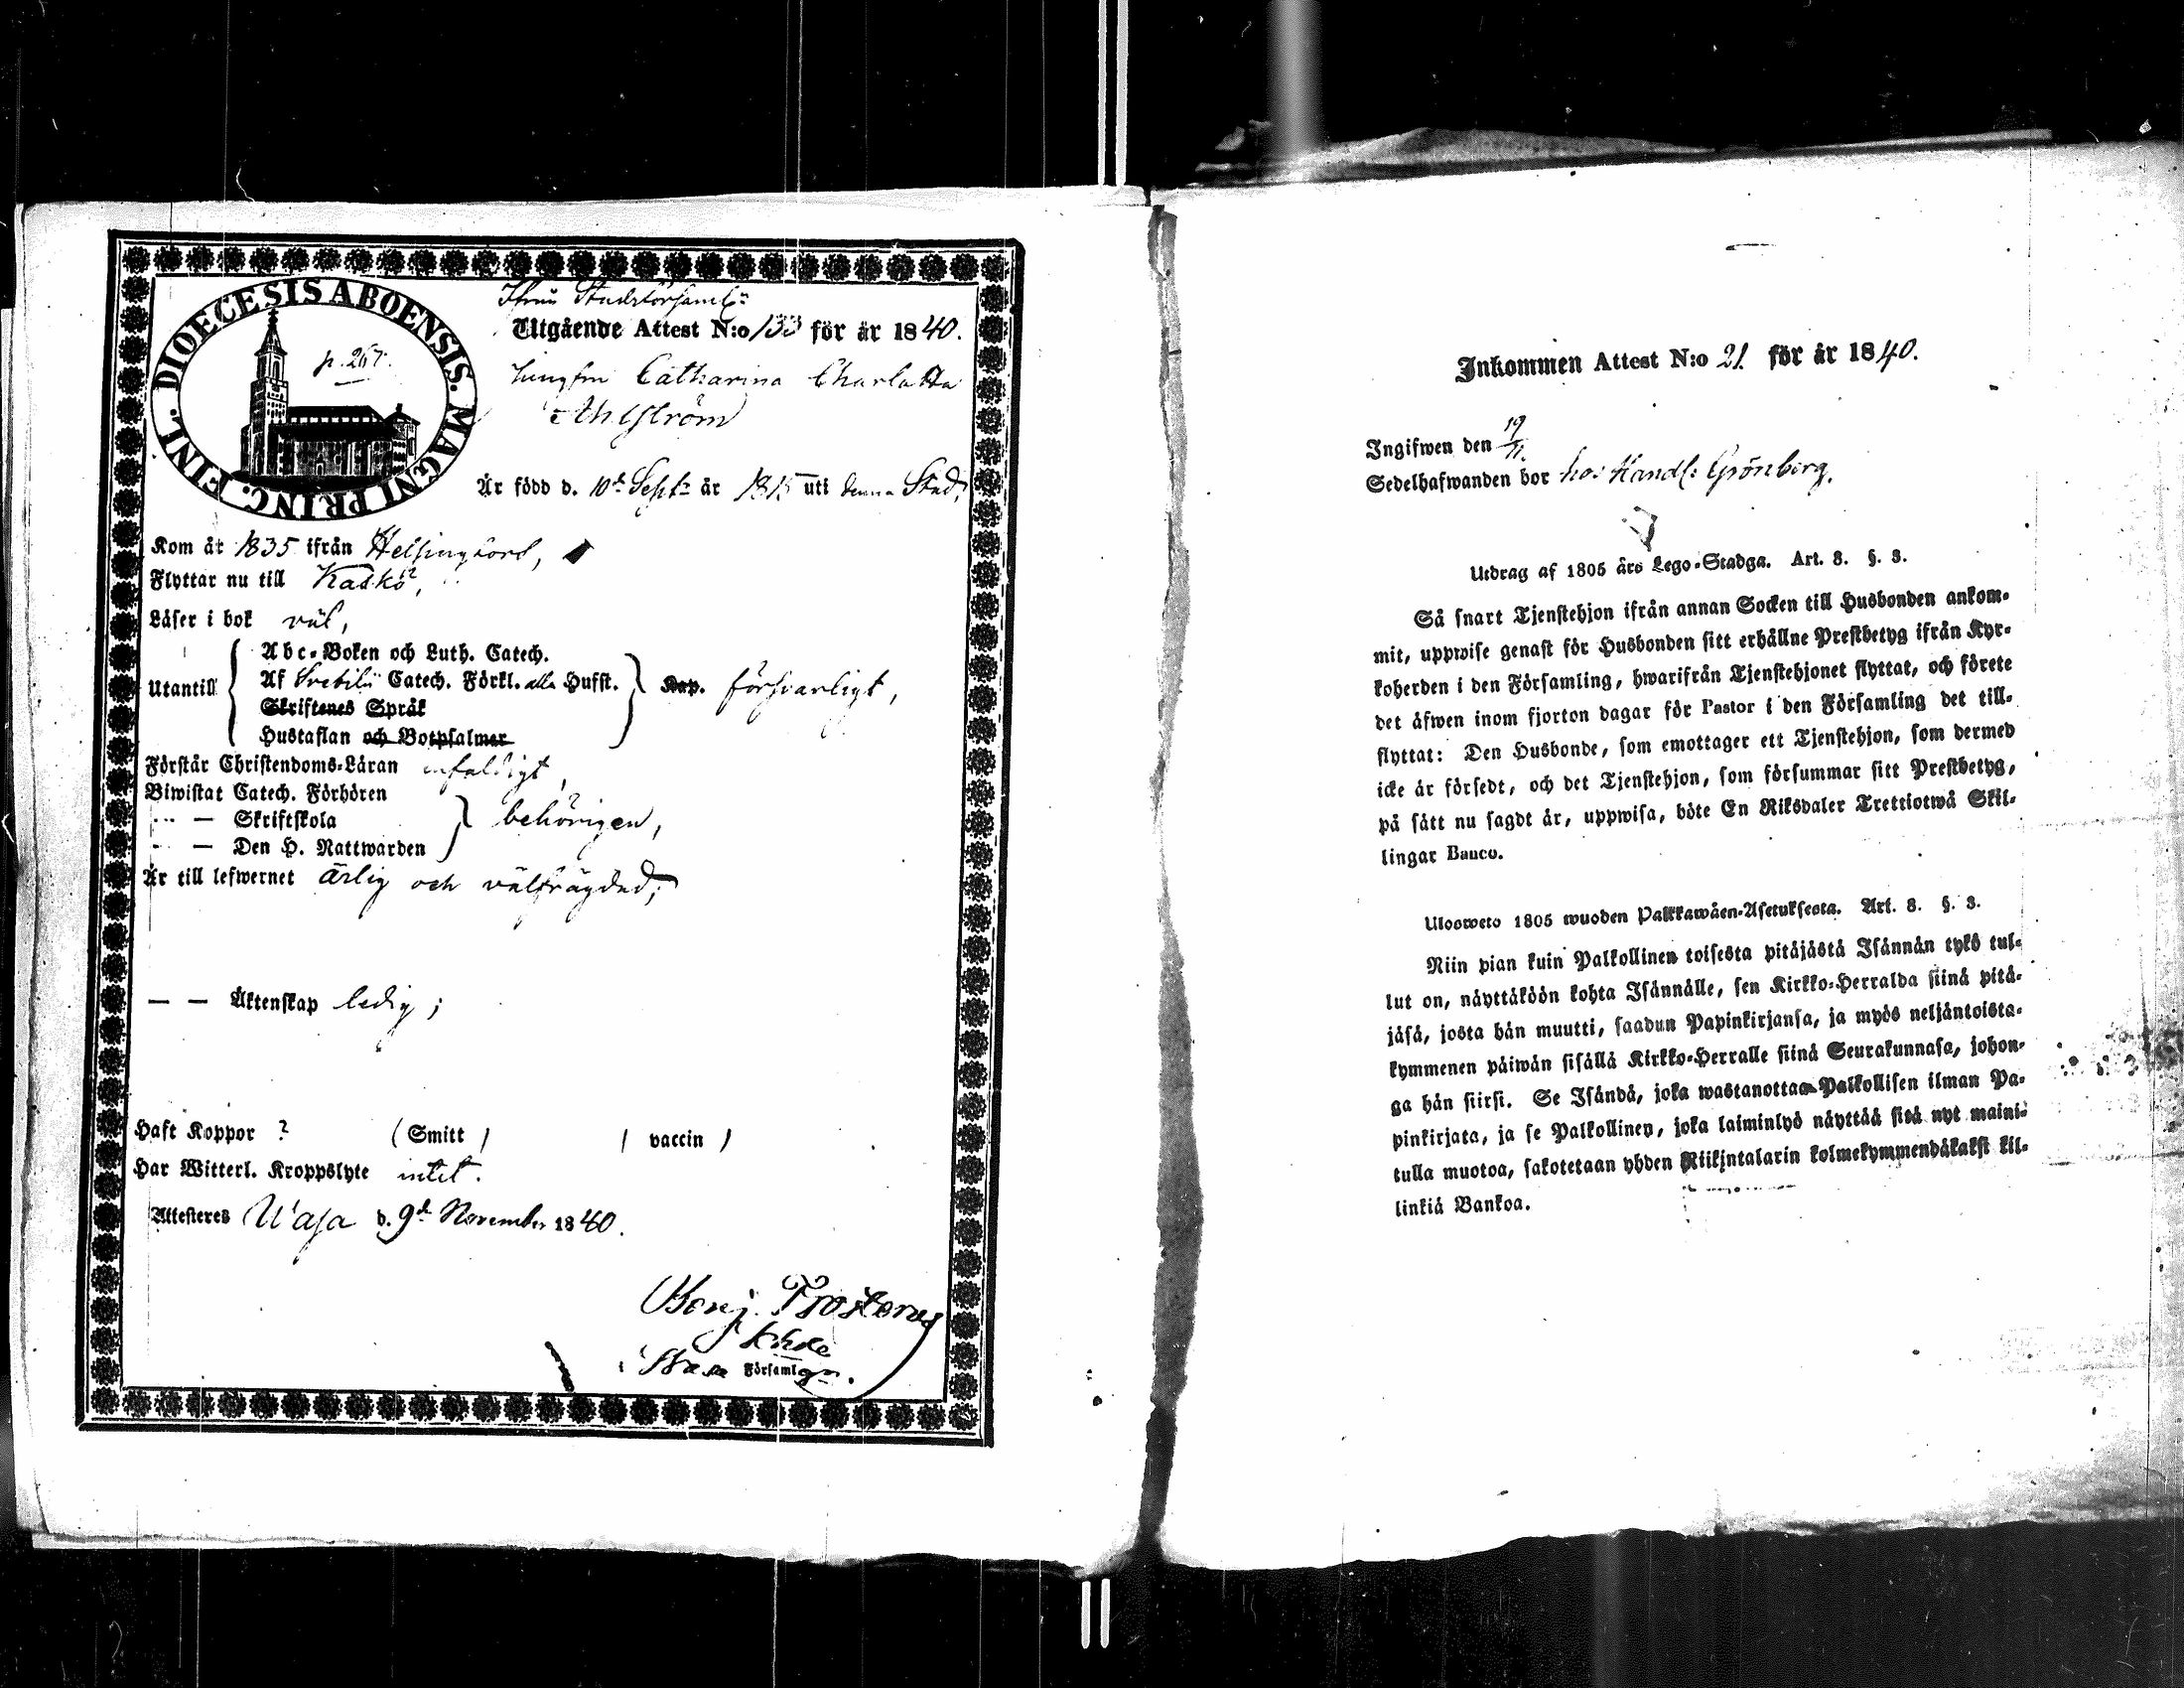 DIOECESIS ABOENSIS. MAGNI PRINC. FINL.
p. 267.
Stadsförsaml:
Utgående Attest N:o 133 för år 1840.
Jungfru Catharina Charlotta
Ahlström
Är född d. 10de Sept: år 1815 uti denna Stad,
Kom år 1835 ifrån Helsingfors,
Flyttar nu till Kaskö,
Läser i bok väl,
Utantill
Abc-Boken och Luth. Catech.
Af Svebilii Catech. Förkl. alla Hufst.
Skriftenes Språk
Hustaflan och Botpsalmer
Kap. försvarligt,
Förstår Christendoms-Läran enfaldigt,
Biwistat Catech. Förhören
— — Skriftskola
— — Den H. Nattwarden
behörigen,
Är till lefwernet ärlig och välfrägdad;
— — Äktenskap ledig;
Haft Koppor ? (Smitt ) ( vaccin )
Har Witterl. Kroppslyte intet.
Attesteres Wasa d. 9de November 1840.
Benj. Frosterus
Khde
i Wasa Församlgn.
Inkommen Attest N:o 21. för år 1840.
Ingifwen den 19/11.
Sedelhafwanden bor hos Handl: Grönberg.
Utdrag af 1805 års Lego-Stadga. Art. 8. §. 3.
Så snart Tjenstehjon ifrån annan Socken till Husbonden ankom-
mit, uppwise genast för Husbonden sitt erhållne Prestbetyg ifrån Kyr-
koherden i den Församling, hwarifrån Tjenstehjonet flyttat, och förete
det äfwen inom fjorton dagar för Pastor i den Församling det till-
flyttat: Den Husbonde, som emottager ett Tjenstehjon, som dermed
icke är försedt, och det Tjenstehjon, som försummar sitt Prestbetyg,
på sätt nu sagdt är, uppwisa, böte En Riksdaler Trettiotwå Skil-
lingar Banco.
Ulosweto 1805 wuoden Palkkawäen-Asetuksesta. Art. 8. §. 3.
Niin pian kuin Palkollinen toisesta pitäjästä Isännän tykö tul-
lut on, näyttäköön kohta Isännälle, sen Kirkko-Herralda siinä pitä-
jäsä, josta hän muutti, saadun Papinkirjansa, ja myös neljäntoista-
kymmenen päiwän sisällä Kirkko-Herralle siinä Seurakunnasa, johon-
ga hän siirsi. Se Isändä, joka wastanottaa Palkollisen ilman Pa-
pinkirjata, ja se Palkollinen, joka laiminlyö näyttää sitä nyt maini-
tulla muotoa, sakotetaan yhden Riikintalarin kolmekymmendäkaksi kil-
linkiä Bankoa.